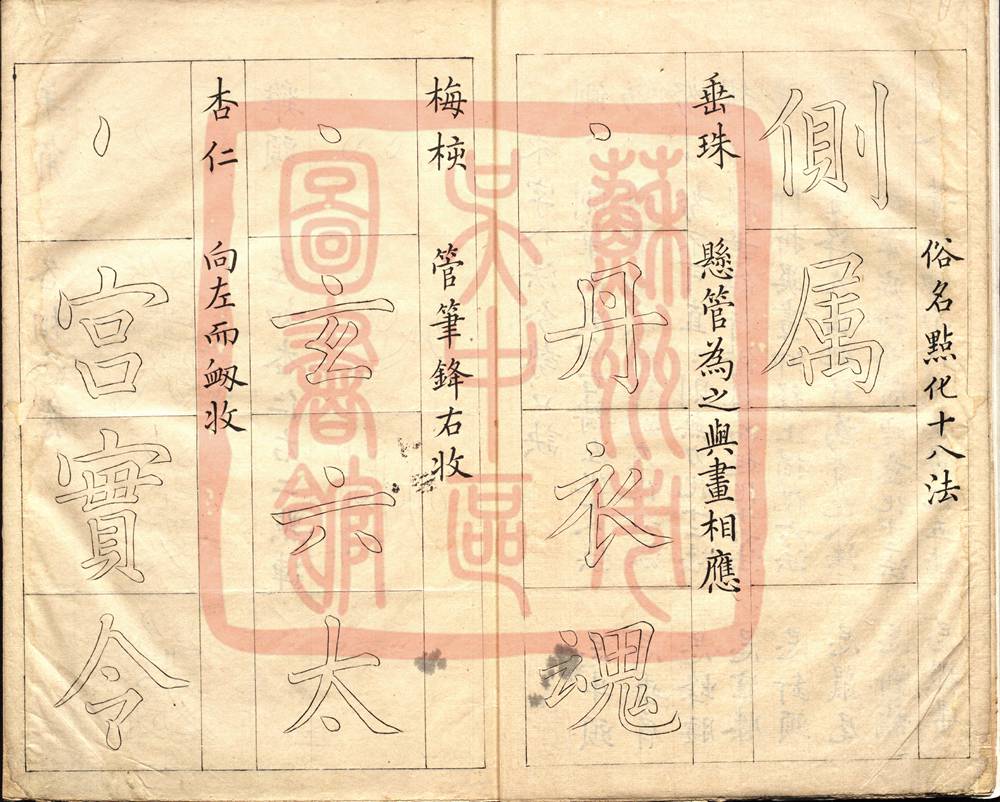 俗名點化十八法
側属
垂珠 懸管為之與畫相應
丶丹衣魂
梅核 管筆鋒右收
丶玄六太
杏仁 向左而衂收
丶宮實令
蘇州市
吴中區
圖書館